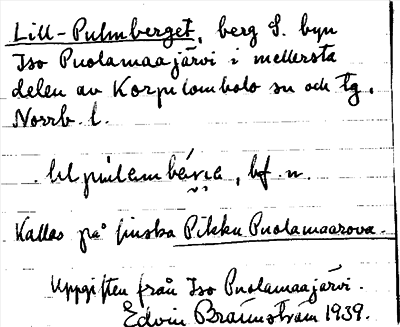 Lill-Pulmberget, berg S. byn
Iso Puolamaajärvi i mellersta
delen av Korpilombolo sn och tg,
Norrb. l.
bf. n.
Kallas på finska Pikku Puolamaarova.
Uppgiften från Iso Puolamaajärvi.
Edvin Brännström 1939.